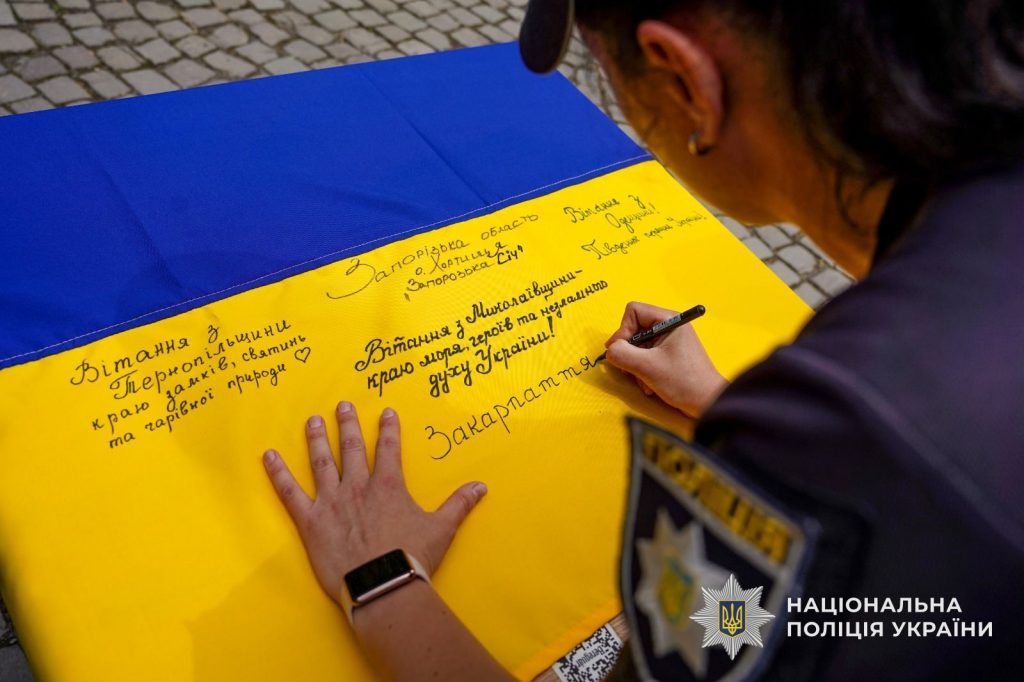 Запорізька область
о. Хортиця
"Запорозька Січ"
Вітання з
Одещини!
Вітання з
Тернопільщини
краю замків, святинь
та чарівної природи ♡
Вітання з Миколаївщини-
краю моря, героїв та незламного
духу України!
Закарпаття
НАЦІОНАЛЬНА
ПОЛІЦІЯ УКРАЇНИ